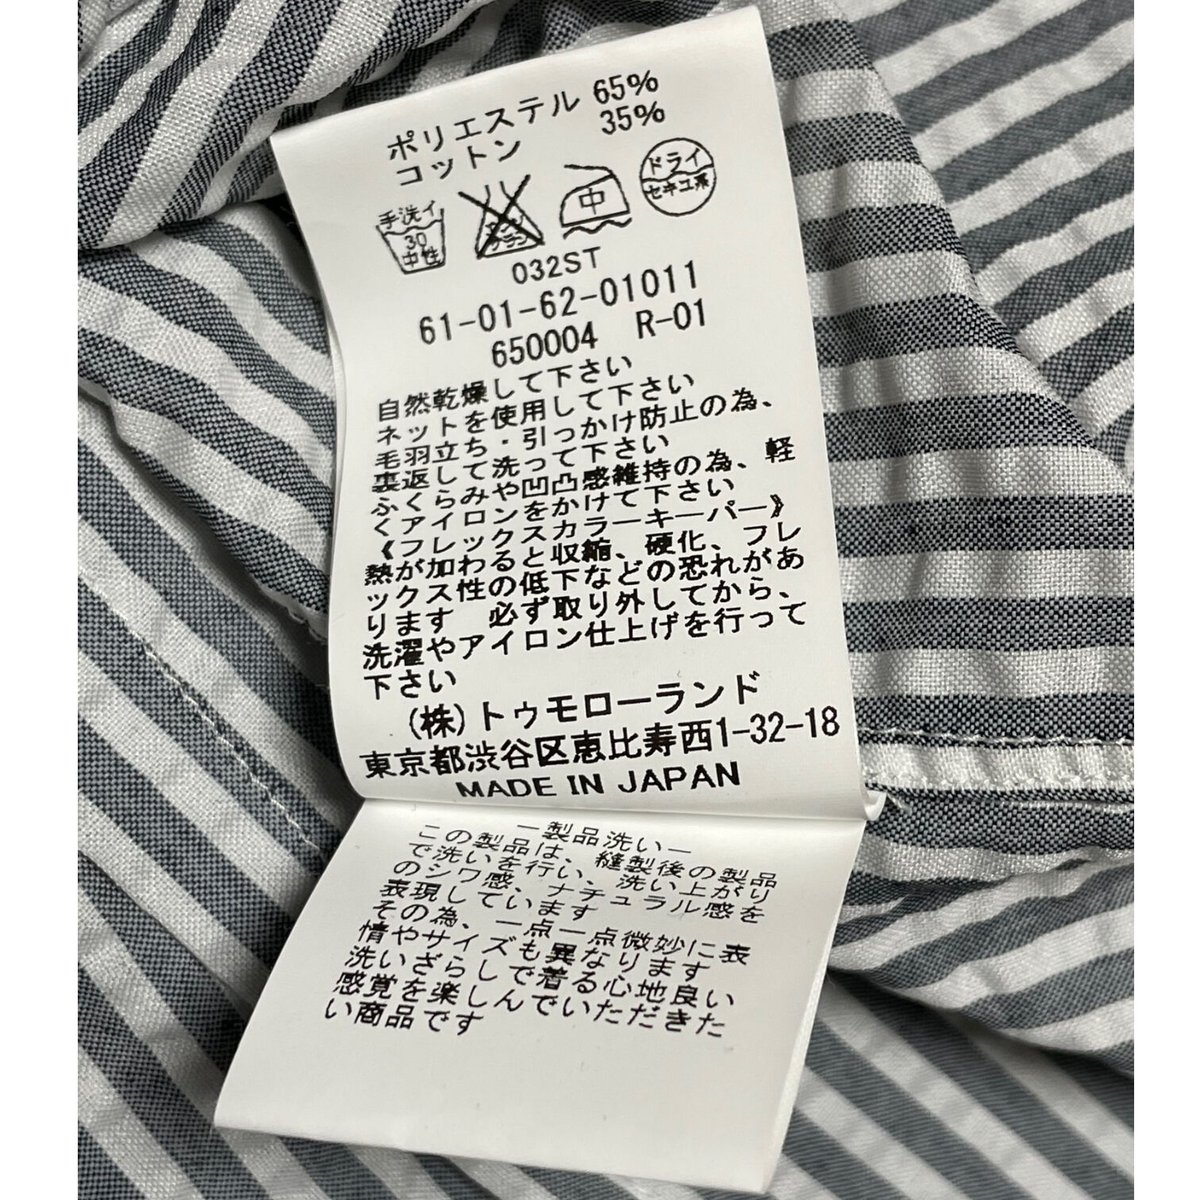 ポリエステル 65%
コットン 35%
手洗イ
30
中性
中
ドライ
セキユ系
032ST
61-01-62-01011
650004 R-01
自然乾燥して下さい
ネットを使用して下さい
毛羽立ち・引っかけ防止の為、
裏返して洗って下さい
ふくらみや凹凸感維持の為、軽
くアイロンをかけて下さい
《フレックスカラーキーパー》
熱が加わると収縮、硬化、フレ
ックス性の低下などの恐れがあ
ります 必ず取り外してから、
洗濯やアイロン仕上げを行って
下さい
(株)トゥモローランド
東京都渋谷区恵比寿西1-32-18
MADE IN JAPAN
ー製品洗いー
この製品は、縫製後の製品
で洗いを行い、洗い上がり
のシワ感、ナチュラル感を
表現しています
その為、一点一点微妙に表
情やサイズも異なります
洗いざらしで着る心地良い
感覚を楽しんでいただきた
い商品です